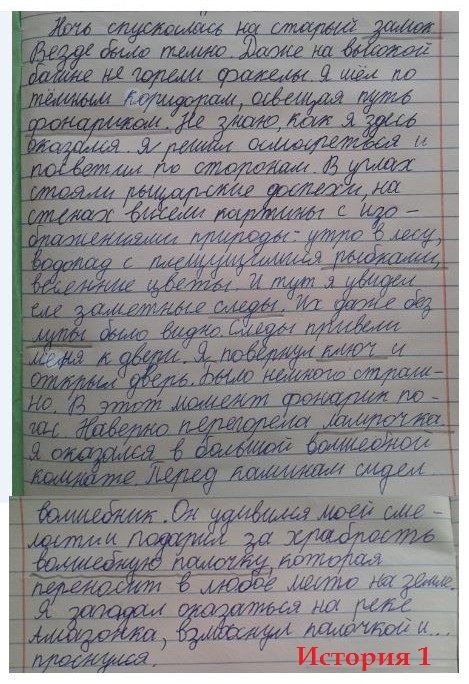 Ночь спускалась на старый замок.
Везде было темно. Даже на высокой
башне не горели факелы. Я шёл по
тёмным коридорам, освещая путь
фонариком. Не знаю, как я здесь
оказался. Я решил осмотреться и
посветил по сторонам. В углах
стояли рыцарские доспехи, на
стенах висели картины с изо-
бражениями природы - утро в лесу,
водопад с плещущимися рыбками,
весенние цветы. И тут я увидел
еле заметные следы. Их даже без
лупы было видно. Следы привели
меня к двери. Я повернул ключ и
открыл дверь. Было немного страш-
но. В этот момент фонарик по-
гас. Наверно перегорела лампочка.
Я оказался в большой волшебной
комнате. Перед камином сидел
волшебник. Он удивился моей сме-
лости и подарил за храбрость
волшебную палочку, которая
переносит в любое место на земле.
Я загадал оказаться на реке
Амазонка, взмахнул палочкой и...
проснулся.
История 1